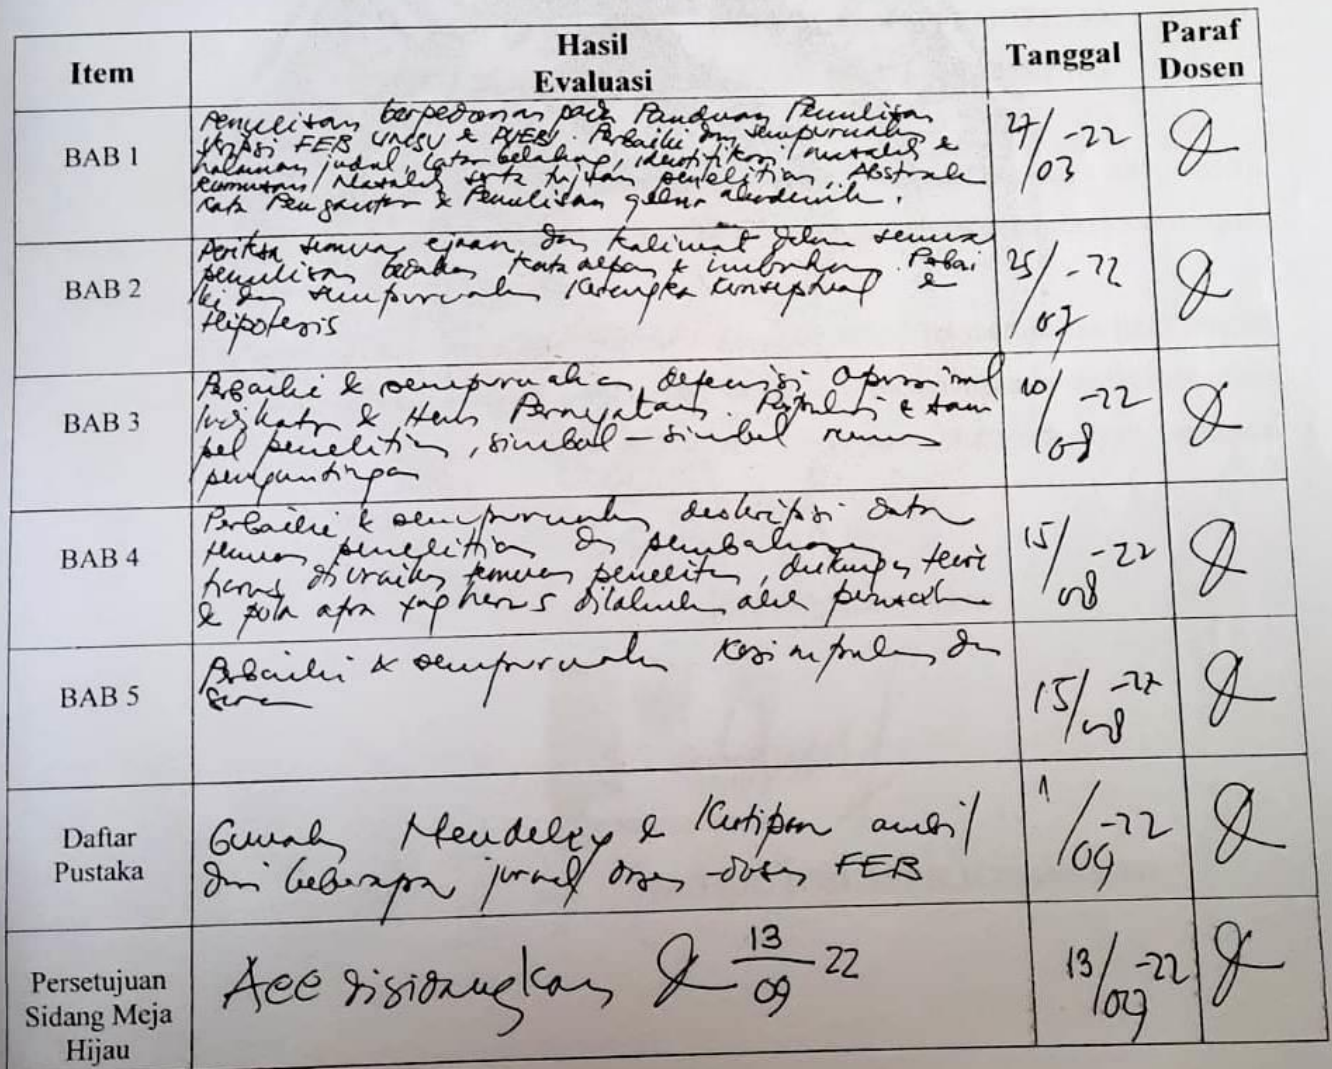 Item Hasil Evaluasi Tanggal Paraf Dosen
BAB 1
Penulisan berpedoman pada Panduan Penulisan
skripsi FEB UMSU & PUEBI. Perbaiki dan sempurnakan
halaman judul, latar belakang, identifikasi masalah &
rumusan masalah serta tujuan penelitian, Abstrak
Kata Pengantar & Penulisan gelar akademik.
27/03-22
BAB 2
Periksa semua ejaan dan kalimat dalam semua
penulisan kata & imbuhan. Perbai
ki dan sempurnakan kerangka konseptual &
Hipotesis
25/07-22
BAB 3
Perbaiki & sempurnakan defenisi
Indikator & Item Pernyataan. Populasi & sam
pel penelitian, simbol-simbol rumus
10/08-22
BAB 4
Perbaiki & sempurnakan deskripsi data
temuan penelitian dan pembahasan
harus diuraikan temuan penelitian, dukungan teori
& pola apa yag harus dilakukan
15/08-22
BAB 5
Perbaiki & sempurnakan kesimpulan dan
saran
15/08-22
Daftar Pustaka
Gunakan Mendeley & Kutipan ambil
dari beberapa jurnal dosen-dosen FEB
1/09-22
Persetujuan Sidang Meja Hijau
Acc disidangkan 13/09 22
13/09-22